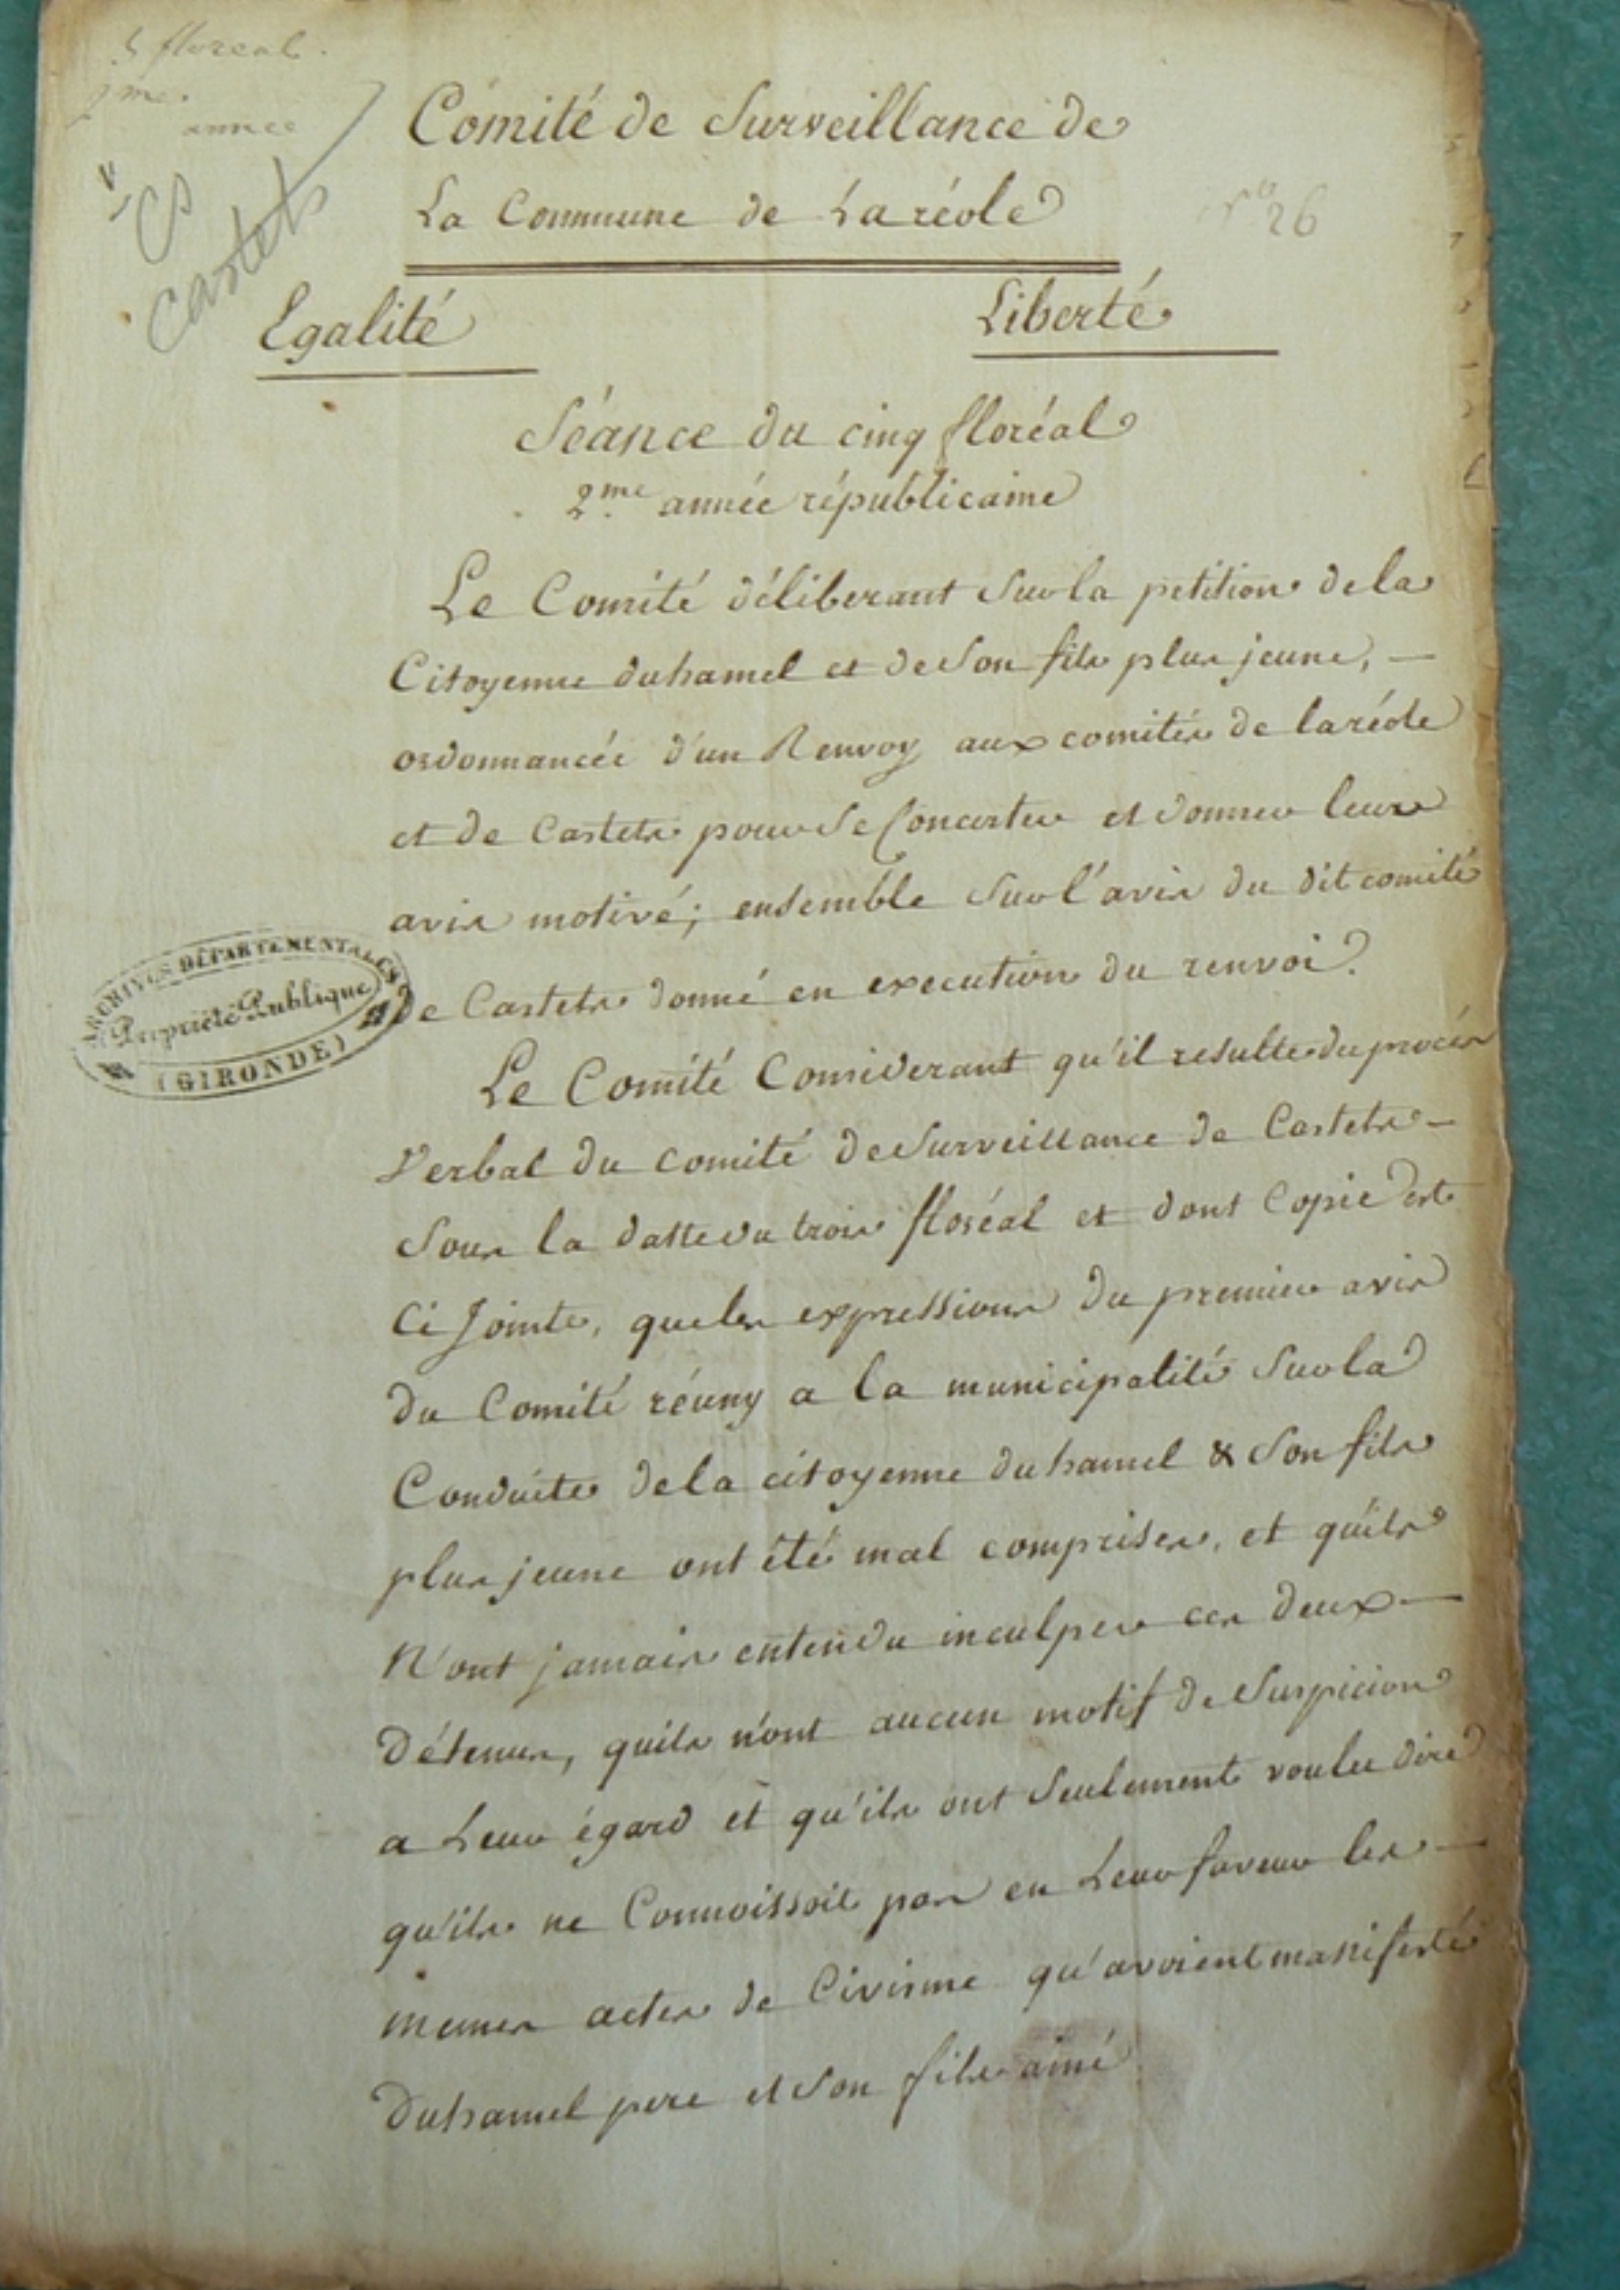 5 floreal.
2me.
année
CS
Castets
Comité de Surveillance de
La Commune de Laréole
no 26
Egalité
Liberté
Séance du cinq floréal
2.me année républicaine
Le Comité déliberant Sur la petition de la
Citoyenne duhamel et de Son fils plus jeune, —
ordonnancée d'un Renvoy aux comités de laréole
et de Castets pour Se Concerter et donner leurs
avis motivé; ensemble Sur l'avis du dit comité
de Castets donné en execution du renvoi.
ARCHIVES DÉPARTEMENTALES
Propriété Publique
(GIRONDE)
Le Comité Considerant qu'il resulte du procès
Verbal du comité de Surveillance de Castets —
Sous la datte du trois floréal et dont Copie est
Ci Jointe, que les expressions du premier avis
du Comité réuny a la municipalité Sur la
Conduite de la citoyenne duhamel & Son fils
plus jeune ont été mal comprises, et qu'ils
N'ont jamais entendu inculper ces deux —
Détenus, quils n'ont aucun motif de Suspicion
a Leur égard et qu'ils ont Seulement voulu dire
qu'ils ne Connoissoit pas en Leur faveur les —
memes actes de Civisme qu'avoient manifesté
Duhamel pere et Son fils ainé